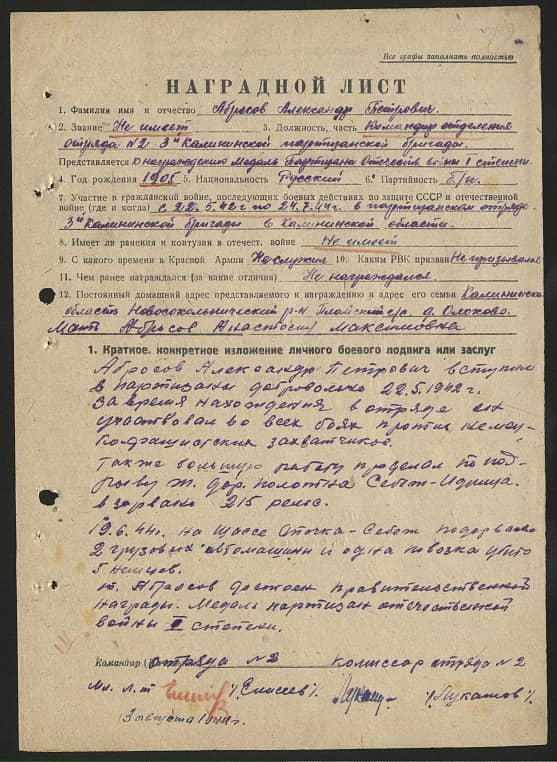 Все графы заполнять полностью
НАГРАДНОЙ ЛИСТ
1. Фамилия имя и отчество Абросов Александр Петрович.
2. Звание Не имеет 3. Должность, часть Командир отделения
отряда №2 3й Калининской партизанской бригады.
Представляется к награждению Медаль Партизана Отечеств войны I степени.
4. Год рождения 1905 5. Национальность Русский 6. Партийность б/п.
7. Участие в гражданской войне, последующих боевых действиях по защите СССР и отечественной
войне (где и когда) с 22.5.42г по 24.7.44г. в партизанском отряде
3й Калинской бригады в Калининской области.
8. Имеет ли ранения и контузии в отечест. войне Не имеет
9. С какого времени в Красной Армии Не служил 10. Каким РВК призван Не призывался
11. Чем ранее награждался (за какие отличия) Не награждался.
12. Постоянный домашний адрес представляемого к награждению и адрес его семьи Калининская
область Новосокольнический р-н с/с. д.
Мать Абросов Анастосия Максимовна
1. Краткое, конкретное изложение личного боевого подвига или заслуг
Абросов Александр Петрович вступил
в партизаны добровольно 22.5.1942 г.
За время нахождения в отряде он
участвовал во всех боях против немец
ко-фашистских захватчиков.
Также большую работу проделал по под-
рыву ж. дор. полотна Себеж-Идрица.
взорвано 215 рельс.
19.6.44г. на шассе Опочка-Себеж подорвано
2 грузовых автомашин и одна повозка убито
5 немцев.
т. Абросов достоен правительственной
награды. Медаль партизан отечественной
войны I степени.
Командир отряда №2 Комиссар отряда №2
Мл. л-т /Елисеев/. /Лукашов/.
3 августа 1944г.